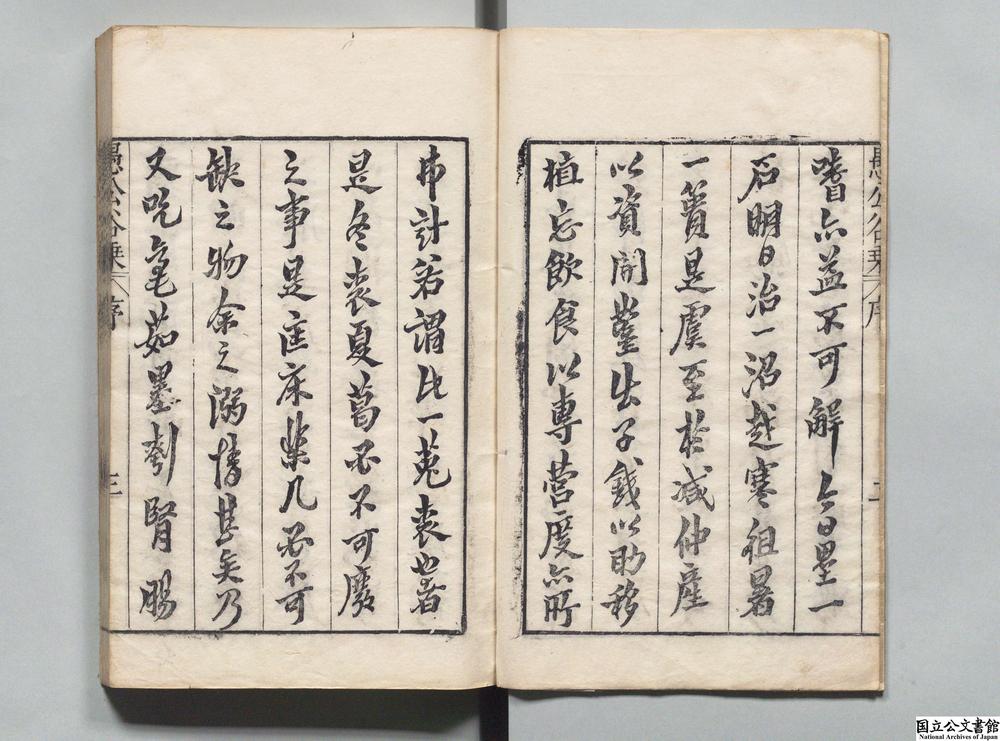 愚公谷乗 序 二
嗜亦益不可解今日壘一
石明日治一沼越寒徂暑
一簣是虞至於减仲産
以資開鑿出子錢以助移
植忘飲食以專營度亦所
弗計若謂此一菟裘也者
是冬裘夏葛必不可廢
之事是匡床棐几必不可
缺之物余之溺情甚矣乃
又吮毫茹墨刳腎腸
愚公谷乗 序 三
国立公文書館
National Archives of Japan